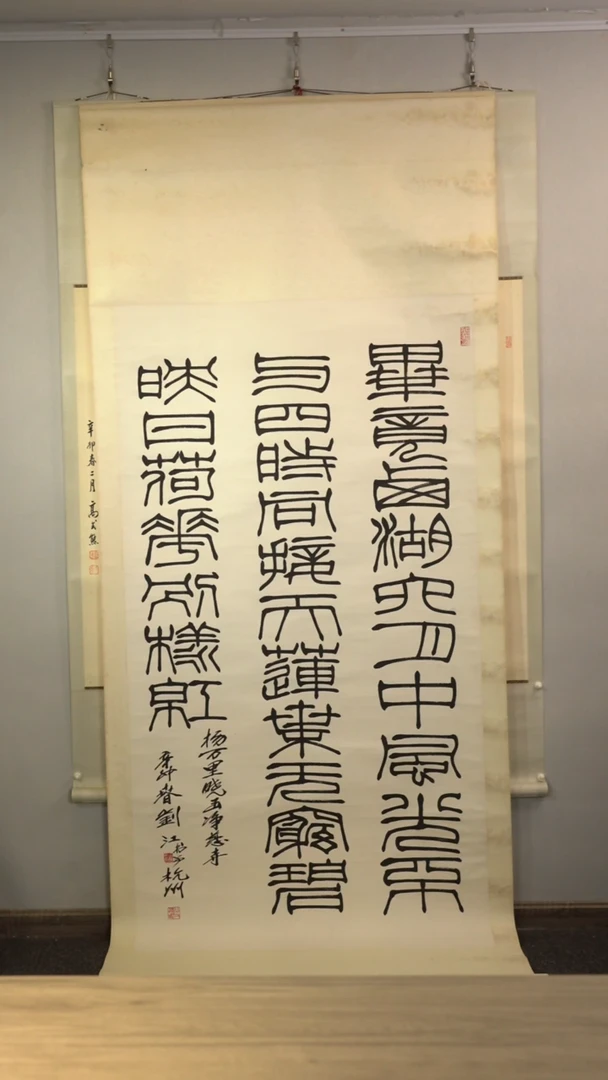 畢竟西湖六月中風光不
与四時同接天蓮葉无窮碧
映日荷花別樣紅
杨万里曉出净慈寺
辛卯春劉江书于杭州
辛卯春二月 高式熊